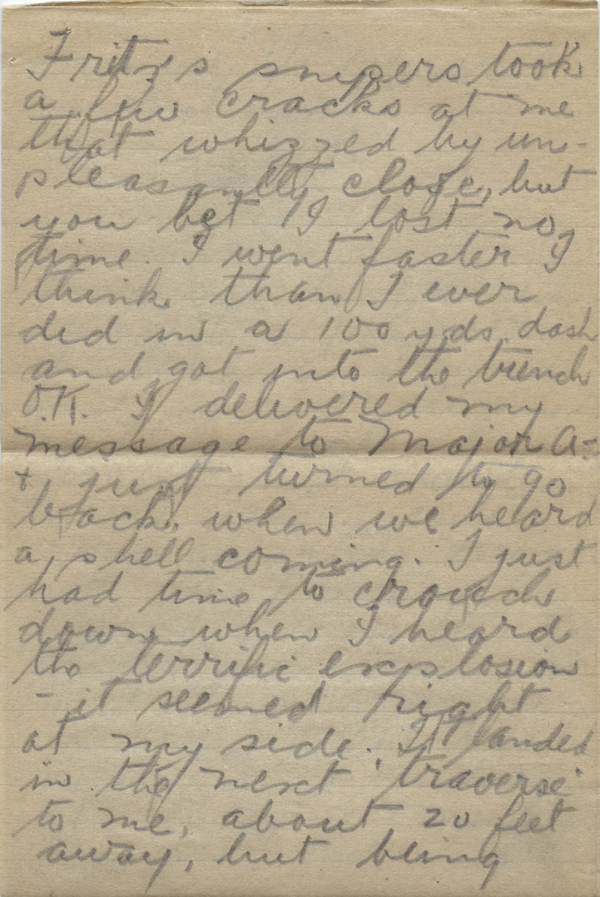 Fritz's snipers took
a few cracks at me
that whizzed by un-
pleasantly close, but
you bet I lost no
time. I went faster I
think than I ever
did in a 100 yds. dash
and got into the trench
O.K. I delivered my
message to Major A-
+ just turned to go
back, when we heard
a shell coming. I just
had time to crouch
down when I heard
the terrific explosion
- it seemed right
at my side. It landed
in the next "traverse"
to me, about 20 feet
away, but being